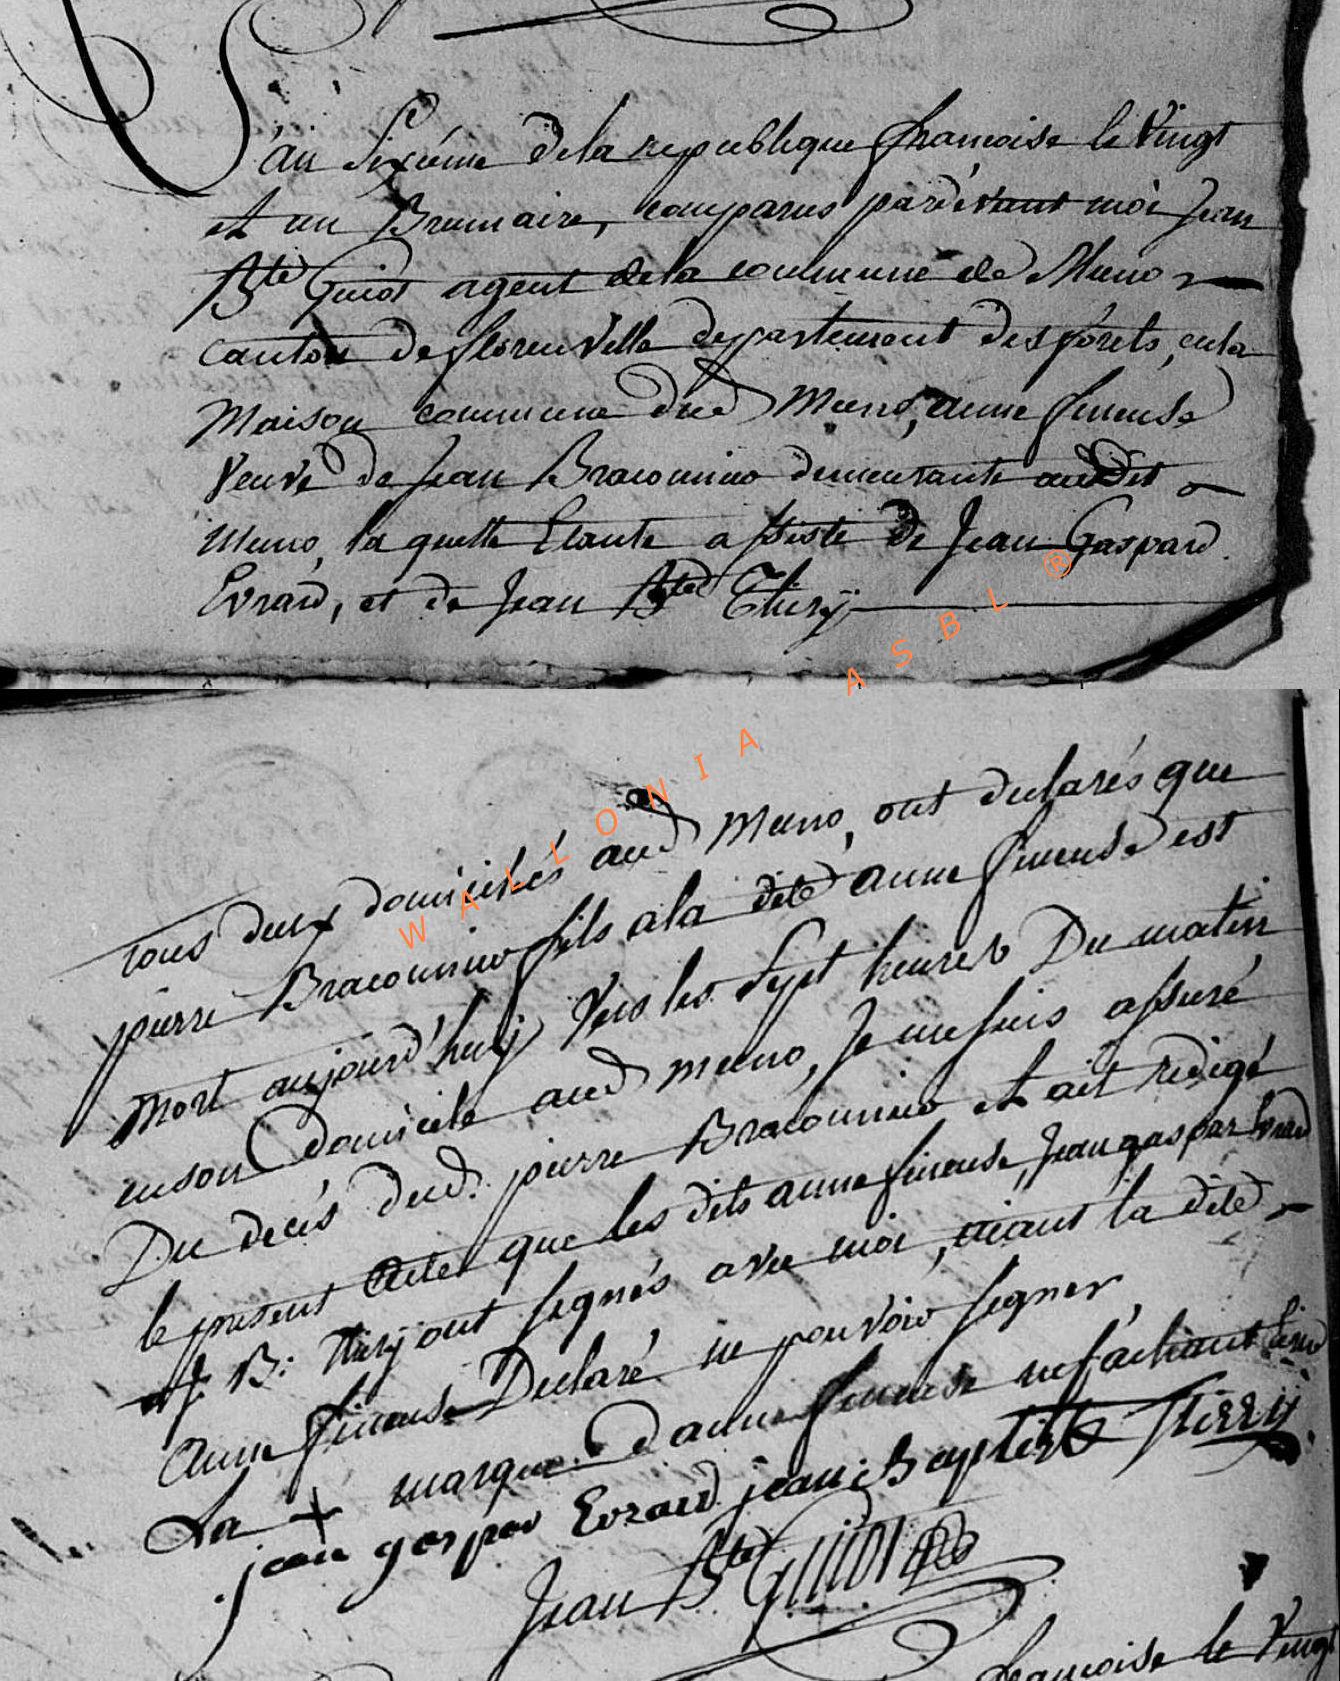 L'an Sixiéme dela republique francoise le Vingt
et un Brumaire, comparus pardevant moi Jean
Bte Guiot agent dela commune de Muno
canton de florenville departement des forets, enla
Maison commune dud Muno, anne fineuse
Veuve de Jean Braconnier demeurante audit
Muno, laquelle Etante assisté de Jean Gaspard
Evrard, et de Jean Bte Thiry
tous deux domiciliés aud Muno, ont declarés que
pierre Braconnier fils ala dite anne fineuse est
Mort aujourd'huy Vers les Sept heures Du matin
enson domicile aud muno, Je mesuis assuré
Du decés dud. pierre Braconnier et ait redigé
le present Acte que les dits anne fineuse, Jean gaspar Evrard
et J. B: Thiry ont signés avec moi, aiant la dite
Anne fineuse Declaré ne pouvoir signer
La + marque d'anne fineuse nesachant
jean gaspar Evrard jean Baptiste Thirry
Jean Bte Guiot
francoise le Vingt
WALLONIA ASBL ®